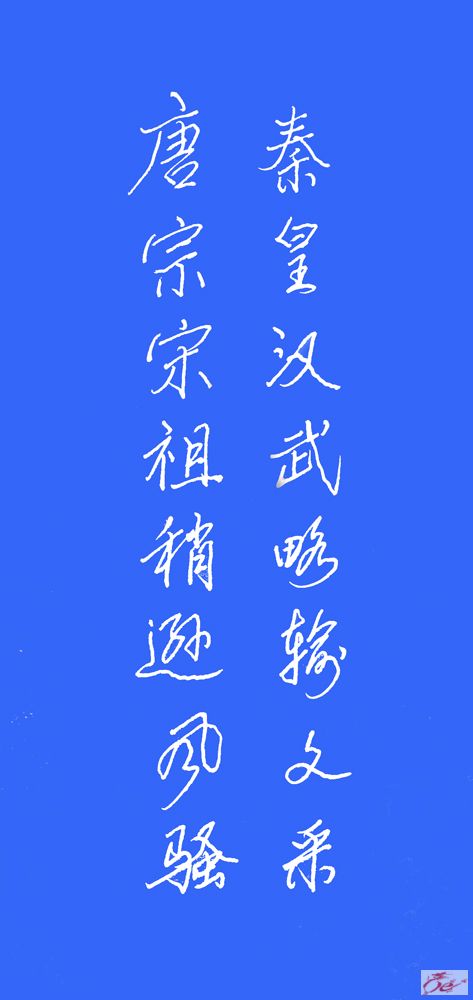 秦皇汉武略输文采
唐宗宋祖稍逊风骚